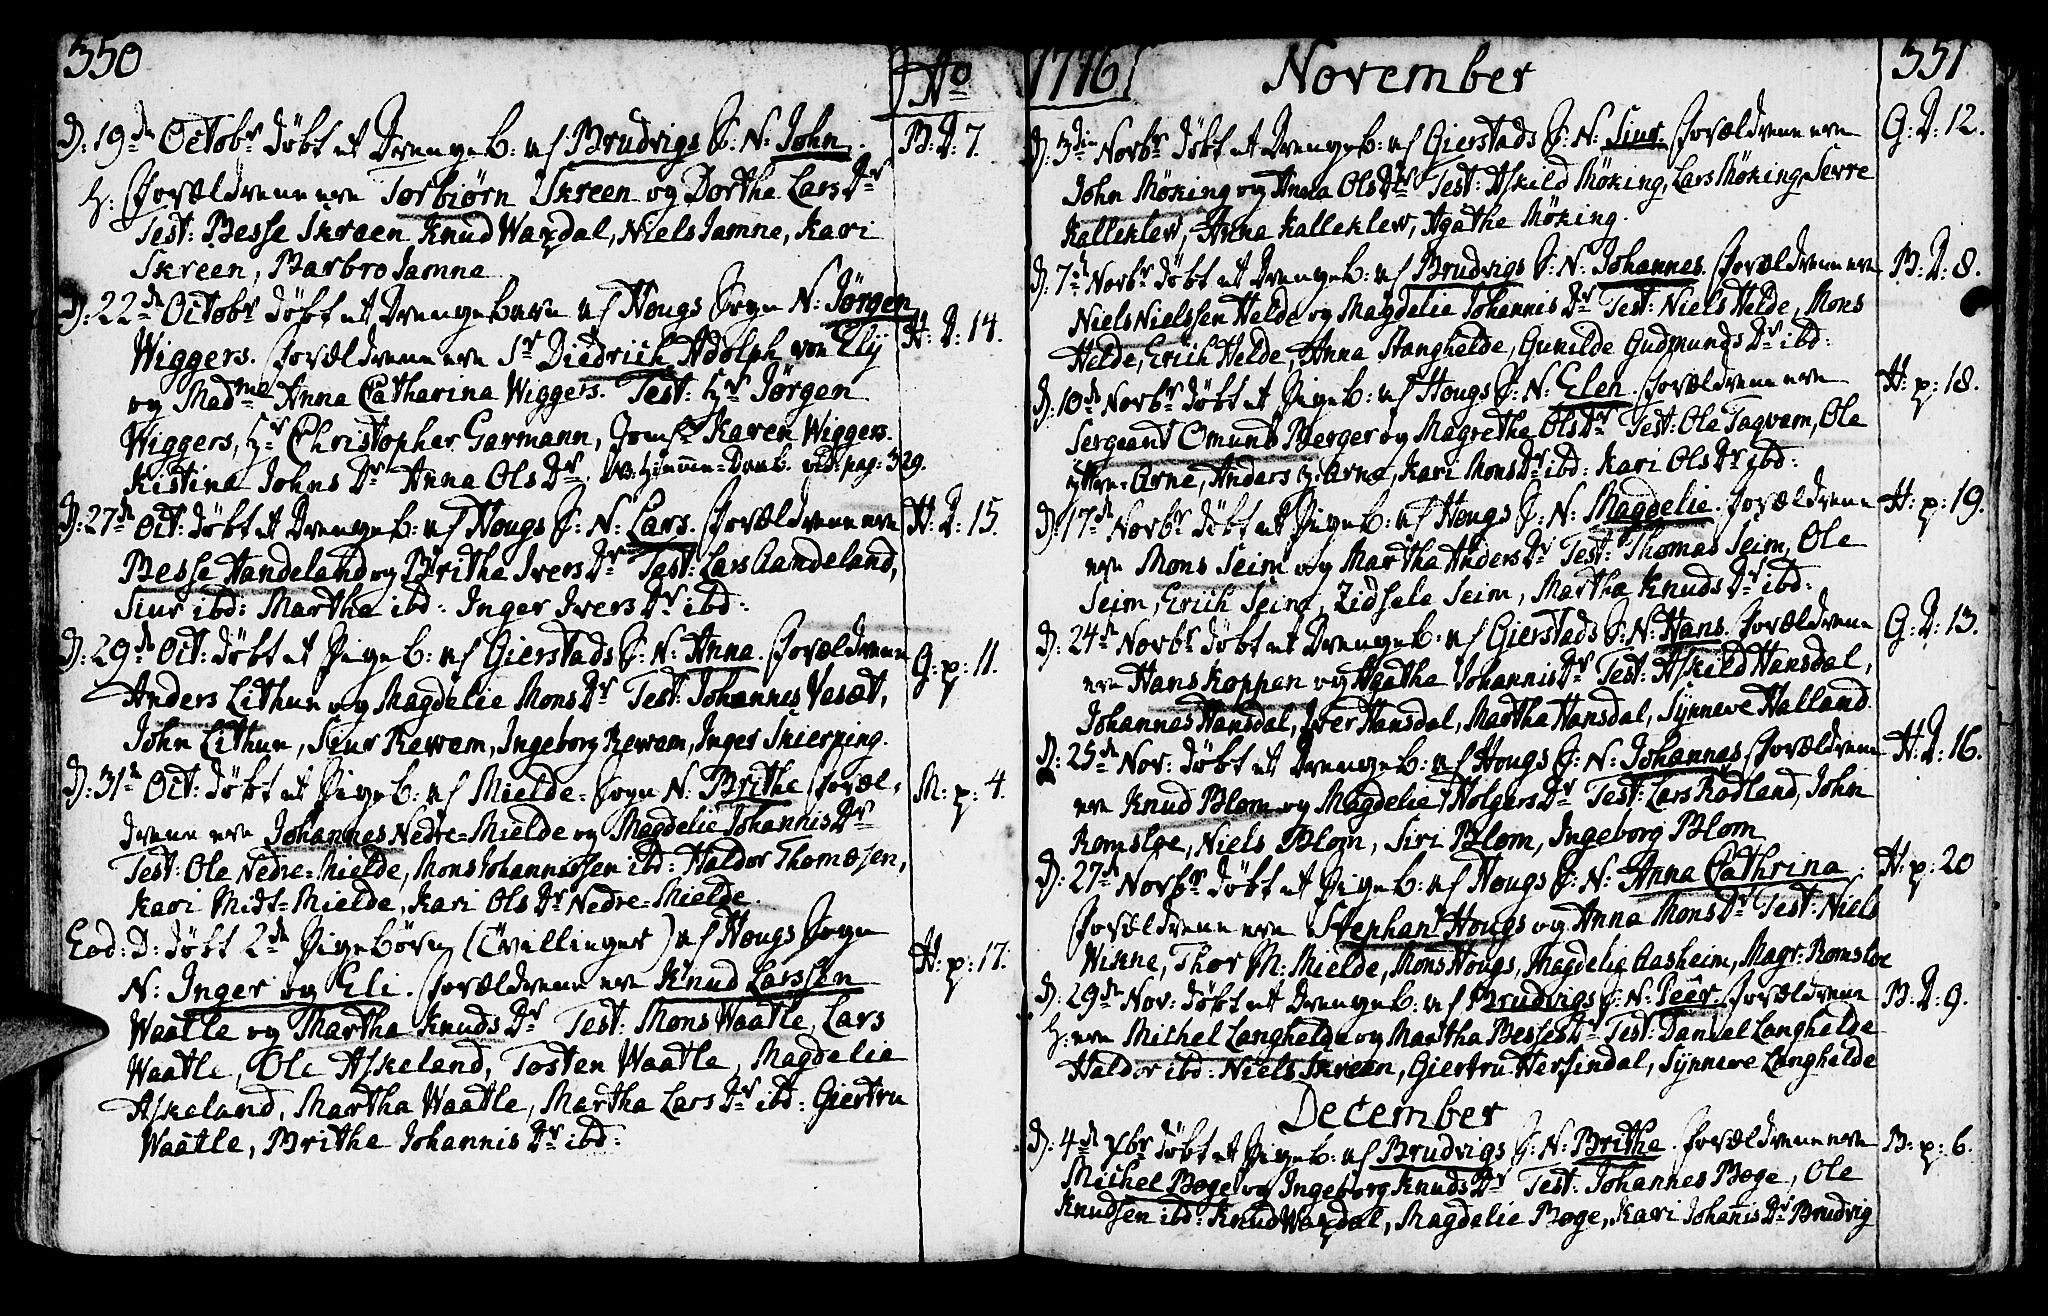 350
Ao
D: 19de Octobr døbt et Drengeb: af Brudvigs S: N: John. B: D: 7.
H: Forældrene ere Torbiørn Skreen og Dorthe Lars Dr
Test: Besse Skreen, Knud Waxdal, Niels Jamne, Kari
Skreen, Barbro Jamne
D: 22de Octobr døbt et Drengebarn af Hougs Sogn N: Jørgen H: D: 14.
Wiggers. Forældrene ere Sr Diedrich Adolph von Elÿ
og Madme Anna Catharina Wiggers. Test: Hr Jørgen
Wiggers, Hr Christopher Garmann, Jomfr Karen Wiggers.
Kistina Johns Dr Anna Ols Dr. NB. Hiemme-Daab. vid: pag: 329.
D: 27de Oct: døbt et Drengeb: af Hougs S: N: Lars. Forældrene ere H: D: 15.
Besse Handeland og Brithe Ivers Dr Test: Lars Aandeland,
Siur ibd: Martha ibd: Inger Ivers Dr ibd:
D: 29de Oct: døbt et Pigeb: af Gierstads S: N: Anna. Forældrene G: p: 11.
Anders Lithun og Magdelie Mons Dr Test: Johannes Vesæt,
John Lithun, Siur Rewem, Ingeborg Rewem, Inger Skierping.
D: 31te Oct: døbt et Pigeb: af Mielde-Sogn N: Brithe Foræl- M: p: 4.
drene ere Johannes Nedre-Mielde og Magdelie Johannis Dr
Test: Ole Nedre-Mielde, Mons Johannessen ibd: Haldor Thomæsen,
Kari Midt-Mielde, Kari Ols Dr Nedre-Mielde.
Eod: D: døbt 2de Pigebørn (Tvillinger) af Hougs Sogn H: p: 17.
N: Inger og Eli. Forældrene ere Knud Larssen
Waatle og Martha Knuds Dr Test: Mons Waatle, Lars
Waatle, Ole Askeland, Tosten Waatle, Magdelie
Askeland, Martha Waatle, Martha Lars Dr ibd: Giertru
Waatle, Brithe Johannis Dr ibd:
1776 November 351
D: 3die Novbr døbt et Drengeb: af Gierstads S: N: Siur. Forældrene ere G: D: 12.
John Möking og Anna Ols Dr Test: Askild Möking, Lars Möking, Serre
Kalleklev, Anna Kalleklev, Agathe Möking.
D: 7de Novbr døbt et Drengeb: af Brudvigs S: N: Johannes. Forældrene ere B: D: 8.
Niels Nielssen Helde og Magdelie Johannis Dr Test: Niels Helde, Mons
Helde, Erich Helde, Anna Stanghelde, Gunilde Gudmunds Dr ibd:
D: 10de Novbr døbt et Pigeb: af Hougs S: N: Elen. Forældrene ere H: p: 18.
Sergeant Omund Berger og Magrethe Ols Dr Test: Ole Tagvam, Ole
Arne, Anders Arne, Kari Mons Dr ibd: Kari Ols Dr ibd:
D: 17de Novbr døbt et Pigeb: af Hougs S: N: Magdelie. Forældrene H: p: 19.
ere Mons Seim og Martha Anders Dr Test: Thomas Seim, Ole
Seim, Erich Seim, Zidsele Seim, Martha Knuds Dr ibd:
D: 24de Novbr døbt et Drengeb: af Gierstads S: N: Hans. Forældrene G: D: 13.
ere Hans Koppen og Agathe Johannis Dr Test: Askild Hansdal,
Johannes Hansdal, Iver Hansdal, Martha Hansdal, Synneve Halland.
D: 25de Nov: døbt et Drengeb: af Hougs S: N: Johannes Forældrene H: D: 16.
ere Knud Blom og Magdelie Holgers Dr Test: Lars Rødland, John
Romsloe, Niels Blom, Siri Blom, Ingeborg Blom
D: 27de Novbr døbt et Pigeb: af Hougs S: N: Anna Cathrina. H: p: 20
Forældrene ere Stephan Hougs og Anna Mons Dr Test: Niels
Winne, Thor M: Mielde, Mons Hougs, Magdelie Aasheim, Magr: Romsloe
D: 29de Nov: døbt et Drengeb: af Brudvigs S: N: Peer. Forældrene B: D: 9.
H: ere Michel Langhelde og Martha Besses Dr Test: Daniel Langhelde
Haldor ibd: Niels Skreen, Giertru Hersindal, Synneve Langhelde
December
D: 4de Xbr døbt et Pigeb: af Brudvigs S: N: Brithe. Forældrene ere B: p: 6.
Michel Boge og Ingeborg Knuds Dr Test: Johannes Boge, Ole
Knudsen ibd: Knud Waxdal, Magdelie Boge, Kari Johanis Dr Brudvig